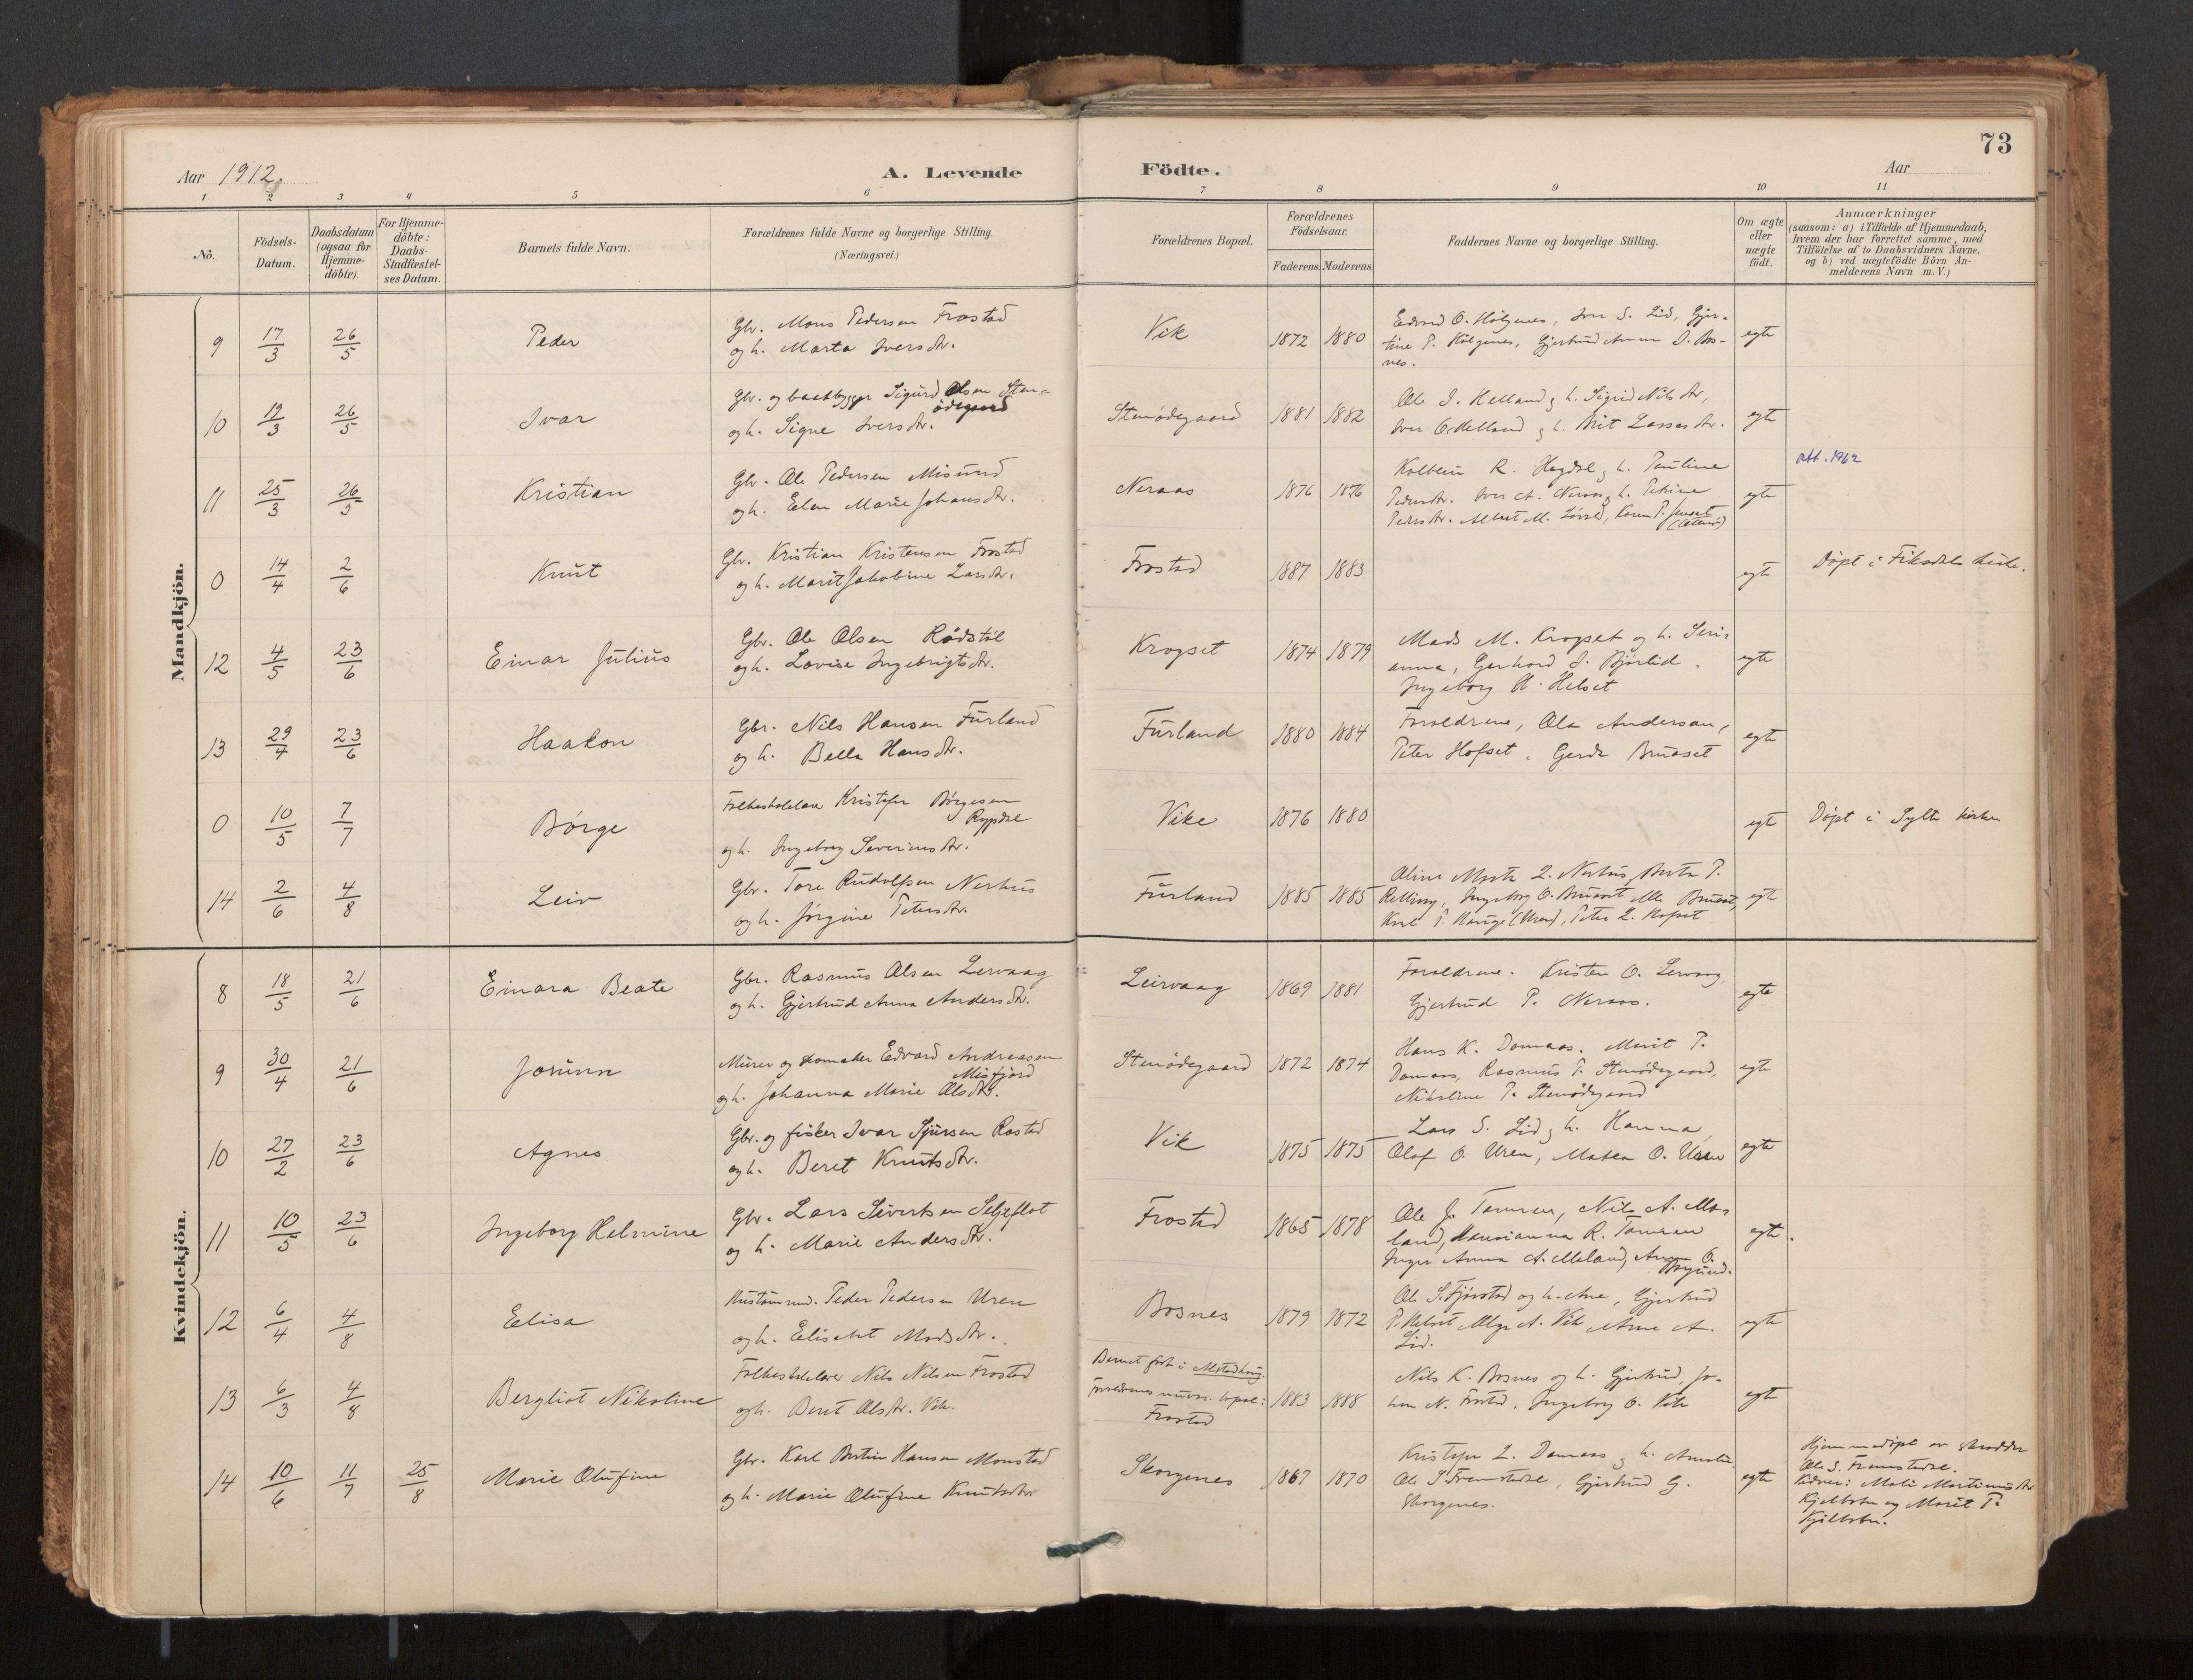 73
Aar 1912.
A. Levende Födte.
Aar
1 2 3 4 5 6 7 8 9 10 11
No.
Födsels-Datum.
Daabsdatum (ogsaa for Hjemme-döbte).
For Hjemme-döbte: Daabs-Stadfæstel-ses Datum.
Barnets fulde Navn.
Forældrenes fulde Navne og borgerlige Stilling.
(Næringsvei.)
Forældrenes Bopæl.
Forældrenes Födselsaar.
Faderens. Moderens.
Faddernes Navne og borgerlige Stilling.
Om ægte eller uægte födt.
Anmærkninger
(saasom: a) i Tilfælde af Hjemmedaab,
hvem der har forrettet samme, med
Tilföielse af to Daabsvidners Navne,
og b) ved uægtefödte Börn An-
melderens Navn m. V.)
Mandkjön.
9 17/3 26/5 Peder
Gbr. Mons Pedersen Frostad
og h. Marta Iversdtr.
Vik 1872 1880
Edvard O. Hølgenes, Iver S. Lid, Gjer-
tine P. Hølgenes, Gjertrud Anna S. Bos-
nes.
egte
10 19/3 26/5 Ivar
Gbr. og baatbygger Sigurd Olsen Sten-
ødegaard
og h. Signe Iversdtr.
Stenødegaard 1881 1882
Ole S. Helland og h. Sigrid Nilsdtr,
Iver O. Helland og h. Brit Lassesdtr.
egte
11 25/3 26/5 Kristian
Gbr. Ole Pedersen Misund
og h. Elen Marie Johansdtr.
Neraas 1876 1876
Kolbein R. Hagdal og h. Pauline
Pedersdtr. Iver A. Neraas og h. Petrine
Pedersdtr. Albert M. Karen P.
egte
att. 1962
0 14/4 2/6 Knut
Gbr. Kristian Kristensen Frostad
og h. Marit Jakobine Larsdtr.
Frostad 1887 1883
egte
Døpt i Fiksdals kirke.
12 4/5 23/6 Einar Julius
Gbr. Ole Olsen Rødstøl
og h. Lovise Ingebrigtsdtr.
Kropset 1874 1879
Mads M. Kropset og h. Seri-
anna, Gerhard S. Bjørlid.
Ingeborg H. Helset
egte
13 29/4 23/6 Haakon
Gbr. Nils Hansen Furland
og h. Bella Hansdtr.
Furland 1880 1884
Foreldrene, Ola Andersen,
Peter Hofset, Gerda Bruaset
egte
0 10/5 7/7 Børge
Folkeskolelærer Kristofer Børgesen
Rypdal
og h. Ingeborg Severinsdtr.
Vike 1876 1880
egte
Døpt i Sylte kirke
14 2/6 4/8 Leiv
Gbr. Tore Rudolfsen Nerhus
og h. Jørgine Petersdtr.
Furland 1885 1885
L. Nerhus, Berta P.
Relling, Ingeborg O. Bruaset, Bruaset,
P. Hauge (Uren), Peter L. Hofset
egte
Kvindekjön.
8 18/5 21/6 Einara Beate
Gbr. Rasmus Olsen Lervaag
og h. Gjertrud Anna Andersdtr.
Leirvaag 1869 1881
Foreldrene. Kristen O. Lervaag,
Gjertrud P. Neraas.
egte
9 30/4 21/6 Jorunn
Murer og skomaker Edvard Andreassen
Misfjord
og h. Johanna Marie Olsdtr.
Stenødegaard 1872 1874
Hans K. Damaas. Marit P.
Damaas, Rasmus P. Stenødegaard,
Nikoline P. Stenødegaard
egte
10 27/2 23/6 Agnes
Gbr. og fisker Ivar Sjursen Rostad
og h. Beret Knutsdtr.
Vik 1875 1875
Lars S. Lid og h. Hanna,
Olaf O. Uren, Matea O. Uren
egte
11 10/5 23/6 Ingeborg Helmine
Gbr. Lars Sivertsen Seljeflot
og h. Marie Andersdtr.
Frostad 1865 1878
Ole J. Tomren, Nils A. Mæ-
land, Hansianna R. Tomren
Inger Anna A. Mæland,
egte.
12 6/4 4/8 Elisa
Hustømmerm. Peder Pedersen Uren
og h. Elisabet Madsdtr.
Bosnes 1879 1872
Ole S. Fjørstad og h. Ane, Gjertrud
P. Helset A. Vik Anne A.
Lid.
egte
13 6/3 4/8 Bergliot Nikoline
Folkeskolelærer Nils Nilsen Frostad
og h. Beret Olsdtr. Vik.
Barnet født i Alstadhaug.
Foreldrenes nuvær. bopæl:
Frostad
1883 1888
Nils K. Bosnes og h. Gjertrud, Jo-
han N. Frostad, Ingeborg O. Vik
egte
14 10/6 11/7 25/8 Marie Olufine
Gbr. Karl Bertin Hansen Monstad
og h. Marie Olufine Knutsdtr
Skorgenes 1867 1870
Kristofer L. Damaas og h. Amalie
Ole S. Fremstedal, Gjertrud G.
Skorgenes.
egte
Hjemmedøpt av skrædder
Ole S. Fremstedal.
Vidner: Mali Martinusdtr
Kjelbotn og Marit P.
Kjelbotn.